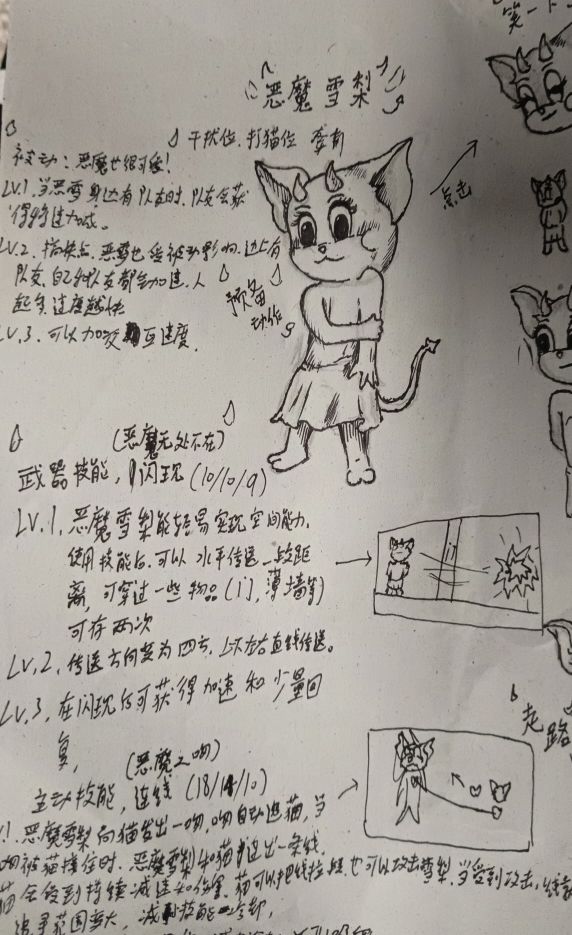 恶魔雪梨
干扰位.打猫位 牵制
被动：恶魔也很可爱！
LV.1.当恶雪身边有队友时,队友会获
得好速加成。
LV.2.
恶雪也会被动影响.边上有
队友,自己和队友都会加速,人
越多,速度越快
LV.3.可以加交互速度.
预备
动作
点击
笑一下
(恶魔无处不在)
武器技能,闪现(10/10/9)
LV.1,恶魔雪梨能轻易实现空间能力,
使用技能后,可以水平传送一段距
离,可穿过一些物品(门,薄墙等)
可存两次
LV.2,传送方向变为四方,上下左右直线传送。
LV.3,在闪现后可获得加速和少量回
复,
(恶魔之吻)
主动技能,连线(18/14/10)
恶魔雪梨向猫发出一吻,吻自动追猫,当
吻被猫撞住时,恶魔雪梨和猫连出一条线.
猫会受到持续减速和伤害.猫可以把线拉短.也可以攻击雪梨.当受到攻击,线
范围变大,减技能冷却,
走路